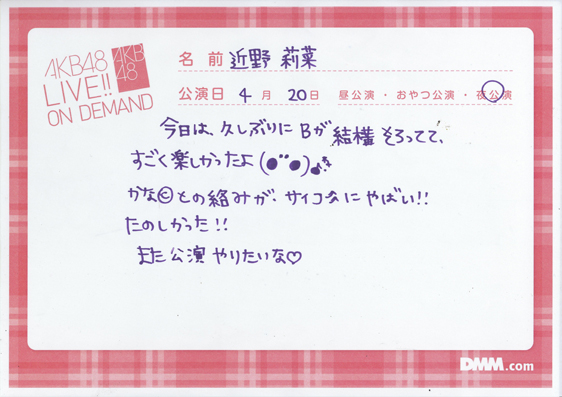 AKB48
LIVE!!
ON DEMAND
AKB
48
名 前 近野 莉菜
公演日 4 月 20 日 昼公演・おやつ公演・夜公演
今日は、久しぶりに Bが 結構 そろってて、
すごく楽しかったよ(●¨●)♪
かな○cとの絡みが、サイコーにやばい!!
たのしかった!!
また公演やりたいな♡
DMM.com